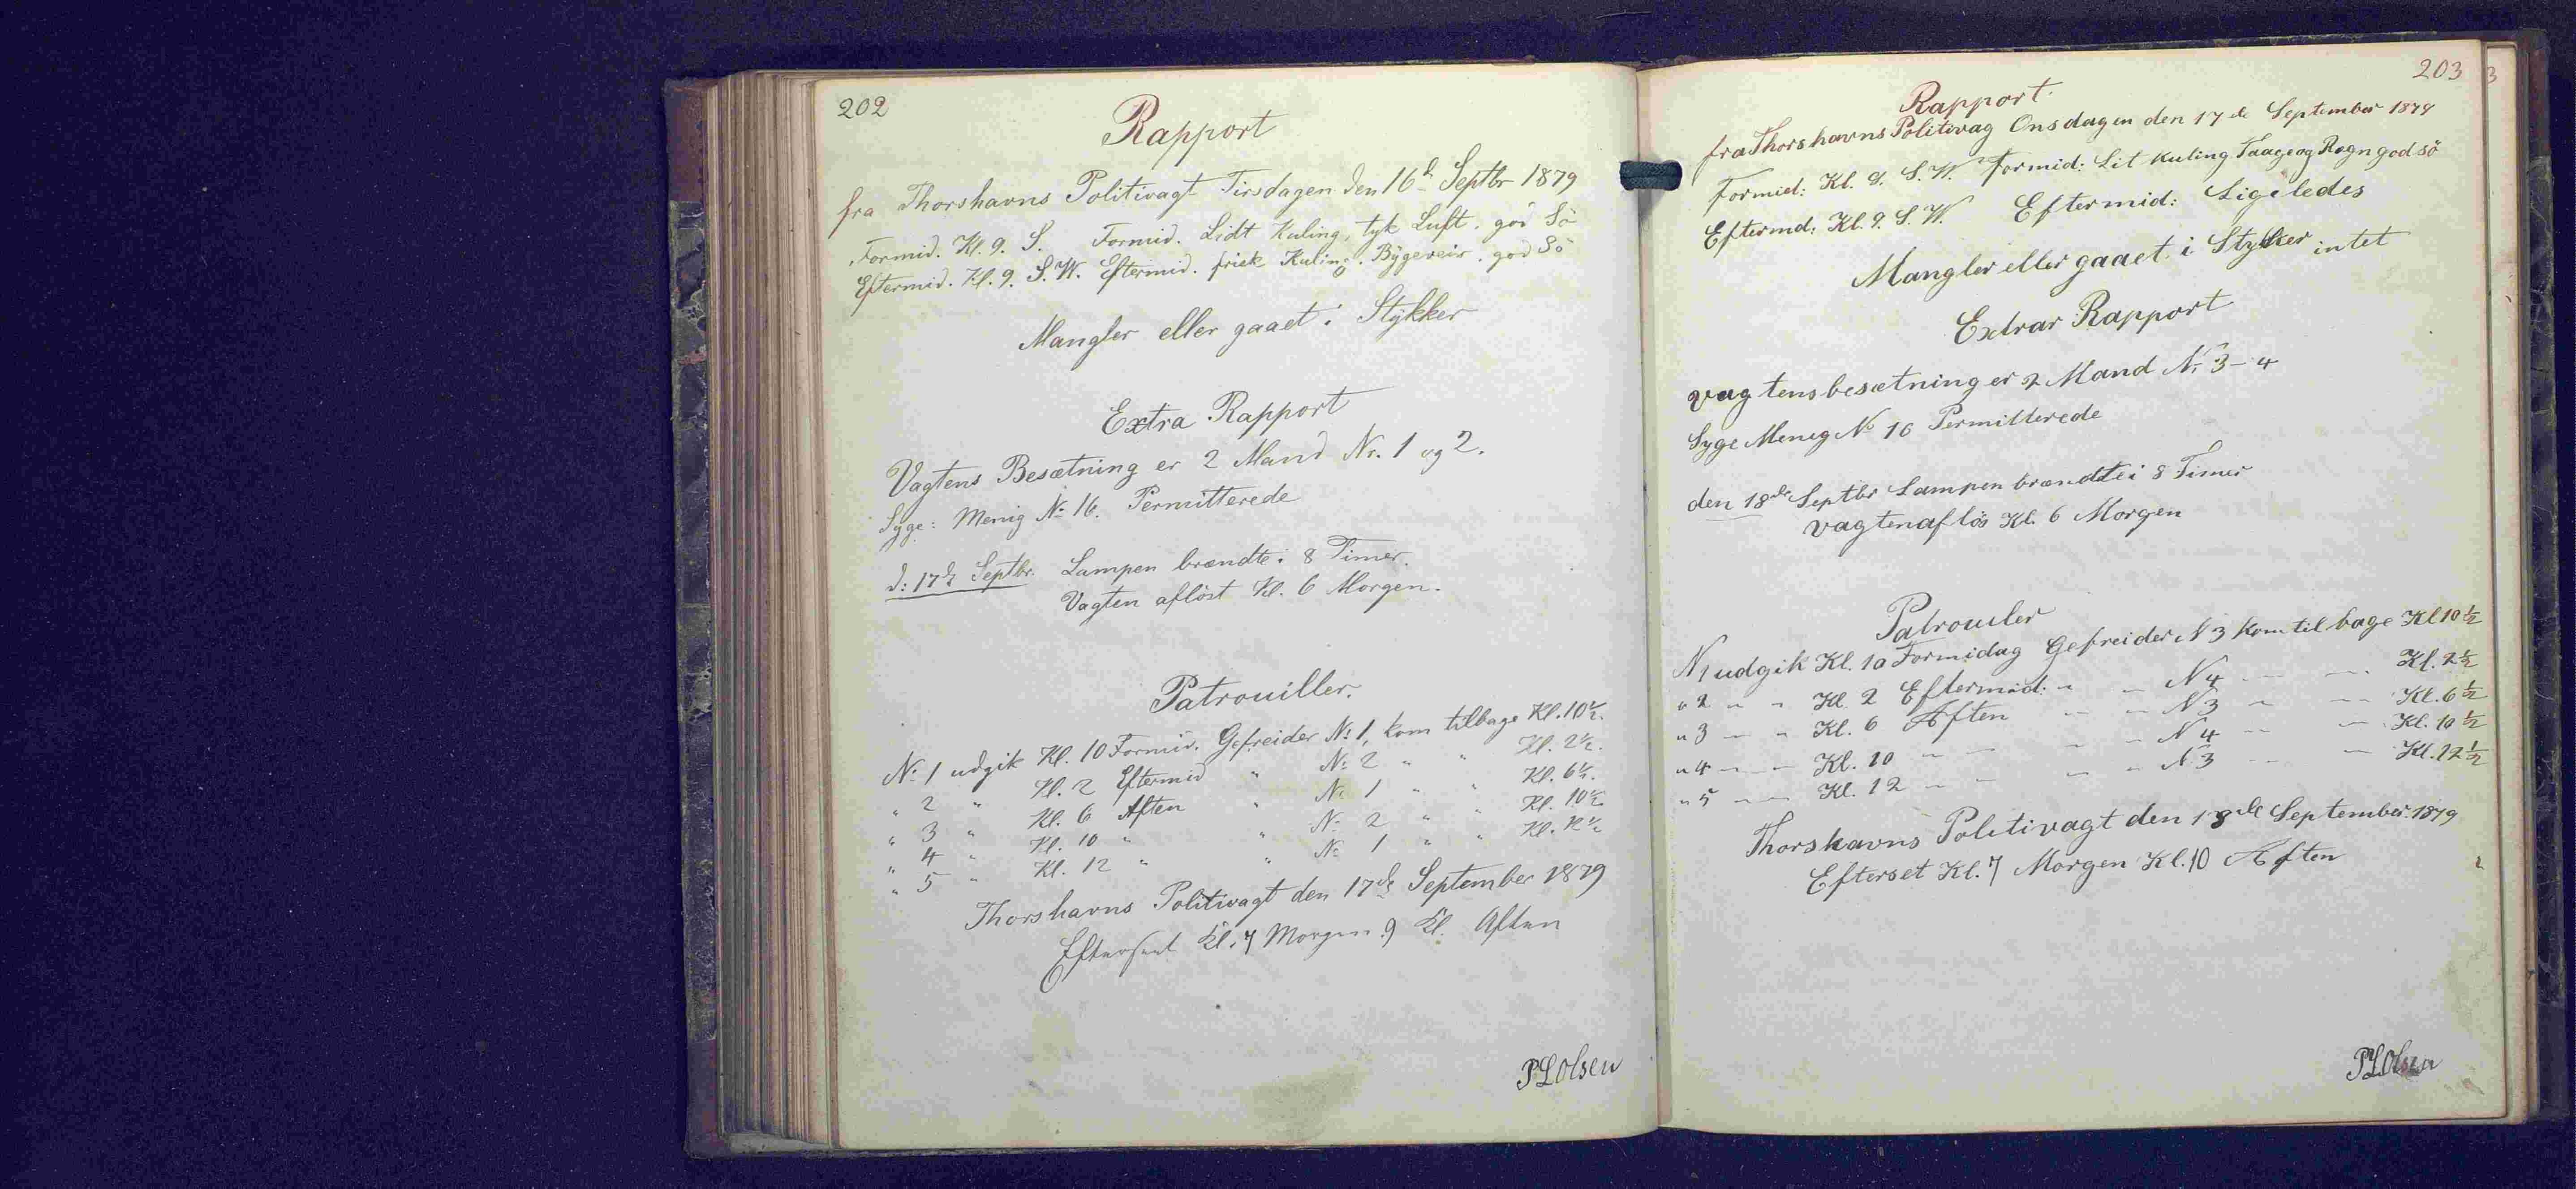 202
Rapport
fra Thorshavns Politivagt Tirsdagen den 16d Septbr 1879
Formid. Kl. 9. S. Formid. Lidt Kuling, tyk Luft, god Sö
Eftermid. Kl. 9. S.W. Eftermid. frisk Kuling. Bygeveir. god Sö
Mangler eller gaaet i Stykker
Extra Rapport
Vagtens Besætning er 2 Mand Nr. 1 og 2.
Syge: Menig No 16. Permitterede
d: 17de Septbr. Lampen brændte i 8 Timer.
Vagten aflöst Kl. 6 Morgen.
Patrouiller.
No 1 udgik Kl. 10 Formid. Gefreider No 1, kom tilbage Kl. 10½.
" 2 " Kl. 2 Eftermid " No 2 " " Kl. 2½.
" 3 " Kl. 6 Aften " No 1 " " Kl. 6½.
" 4 " Kl. 10 " " No 2 " " Kl. 10½.
" 5 " Kl. 12 " " No 1 " " Kl. 12½
Thorshavns Politivagt den 17de September 1879
Efterseet Kl. 7 Morgen 9 Kl. Aften
PLOlsen
203
Rapport.
fra Thorshavns Politivag Onsdagen den 17de September 1879
Formid: Kl. 9. S.W. Formid: Lit Kuling Taage og Regn god sö
Eftermd: Kl. 9. S.W. Eftermid: Ligeledes
Mangler eller gaaet i Stykker intet
Extrar Rapport
vagtens besætning er 2 Mand Nr 3-4
Syge Menig No 16 Permitterede
den 18de Septbr Lampen brændte i 8 Timer
vagten aflös Kl. 6 Morgen
Patrouiler
N 1 udgik Kl. 10 Formidag Gefreider N 3 kom til bage Kl 10½
" 2 " " Kl. 2 Eftermid: " " N 4 " " Kl. 2½
" 3 " " Kl. 6 Aften " " N 3 " " Kl. 6½
" 4 " " Kl. 10 " " " N 4 " " Kl. 10½
" 5 " " Kl. 12 " " " N 3 " " Kl. 12½
Thorshavns Politivagt den 18de September 1879
Efterset Kl. 7 Morgen Kl. 10 Aften
PLOlsen